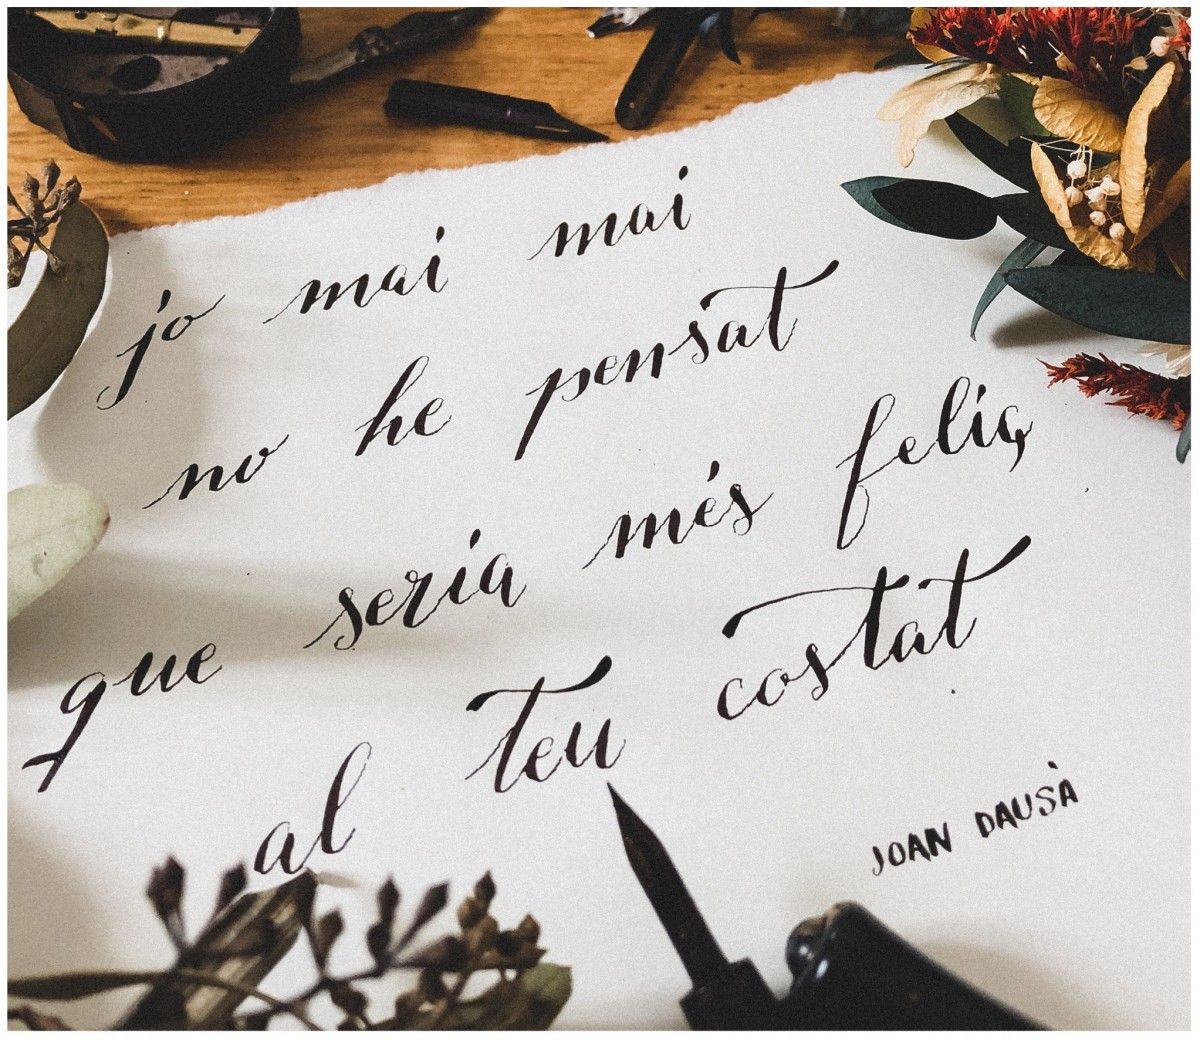 jo mai mai
no he pensat
que seria més feliç
al teu costat
JOAN DAUSÀ